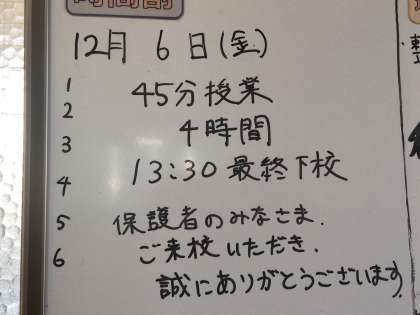 時間割
12月 6日(金)
1
2
3
4
5
6
45分授業
4時間
13:30 最終下校
保護者のみなさま.
ご来校いただき.
誠にありがとうございます